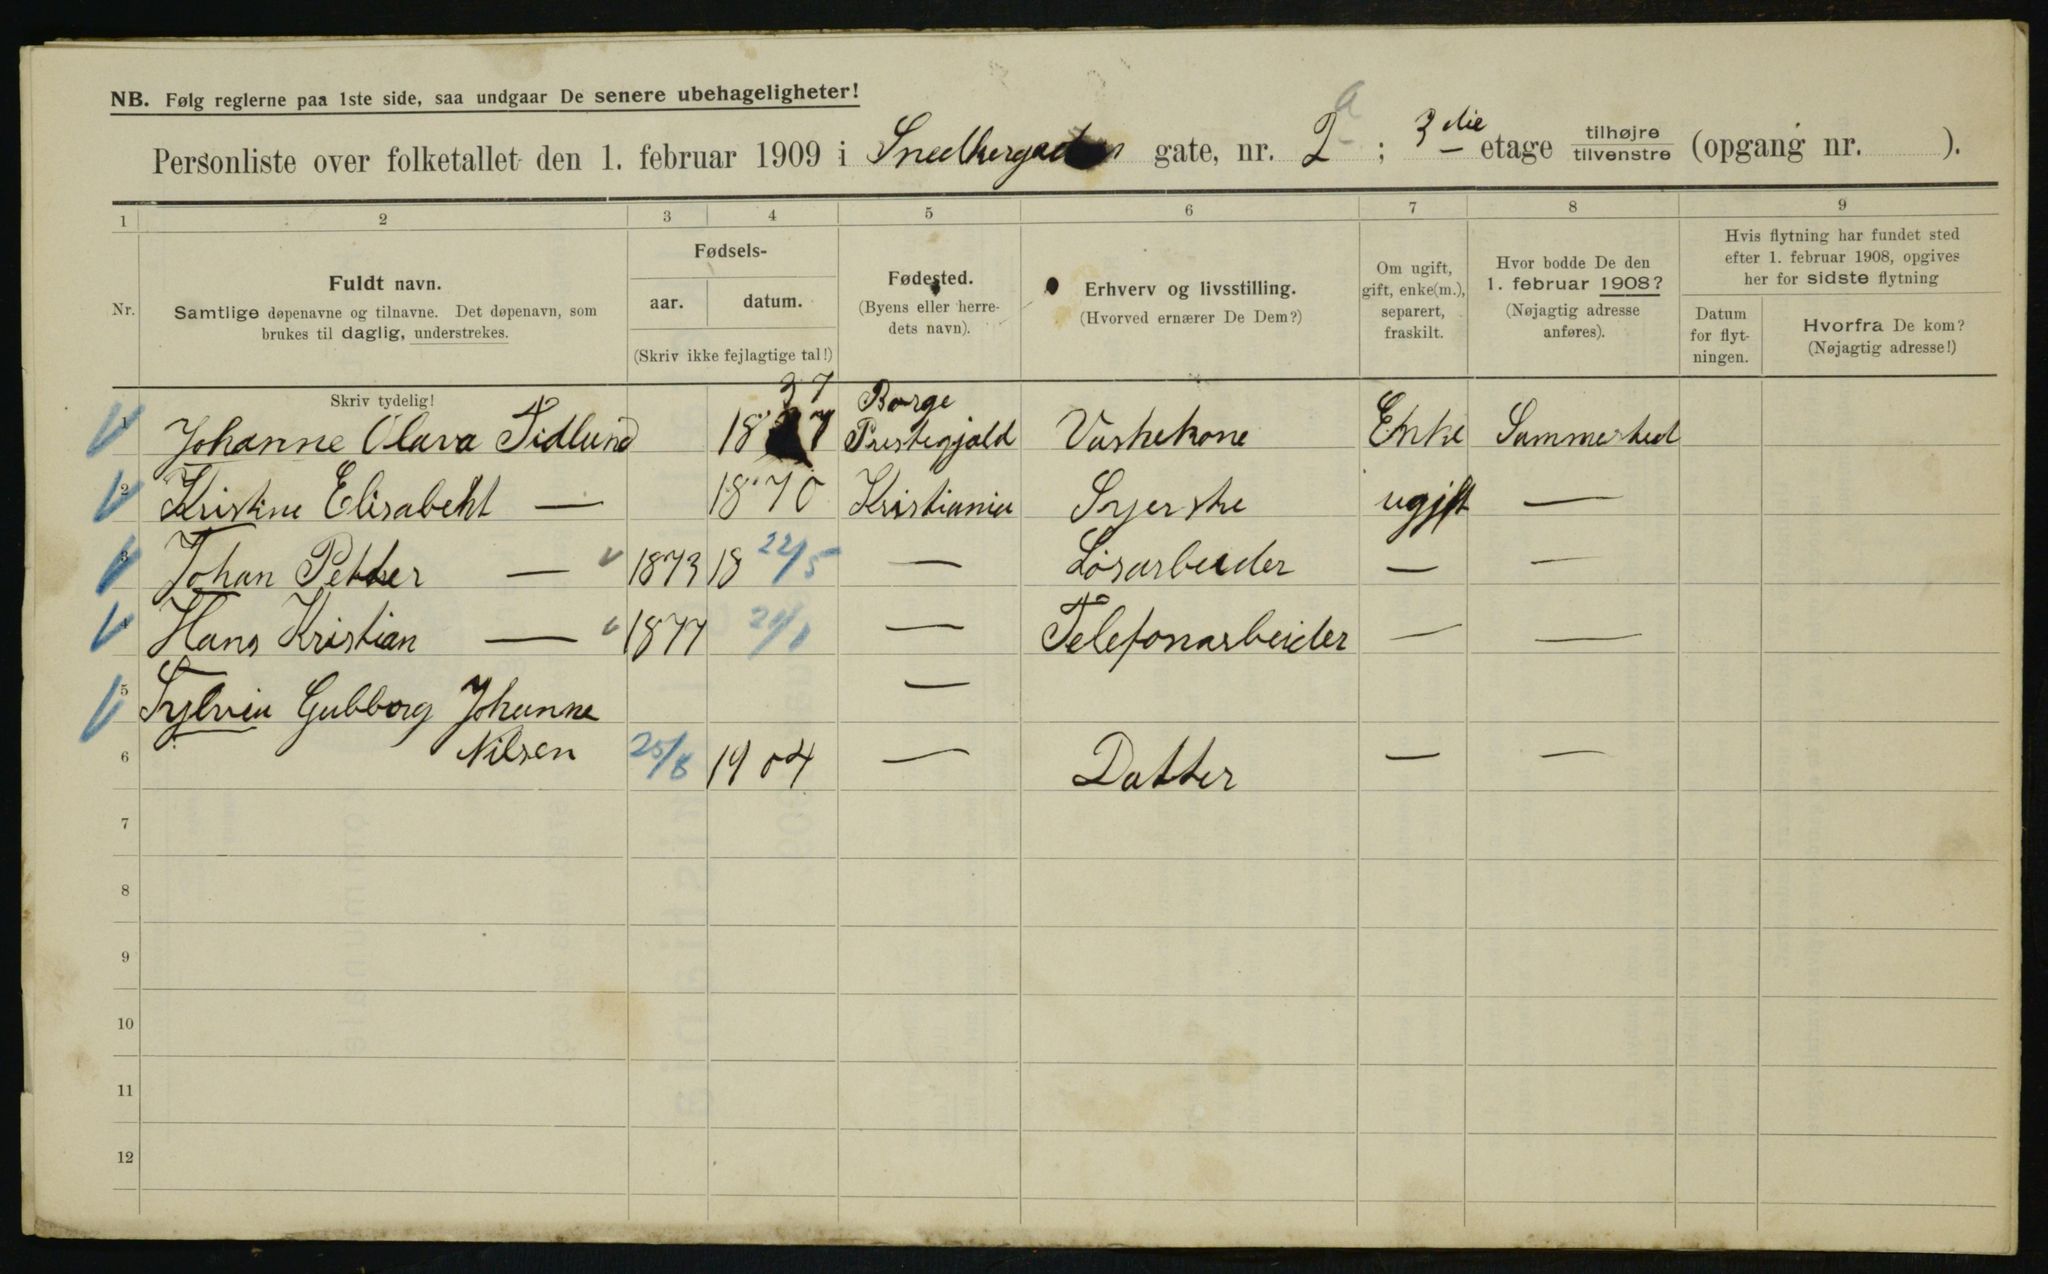 NB. Følg reglerne paa 1ste side, saa undgaar De senere ubehageligheter!
Personliste over folketallet den 1. februar 1909 i Snedkergaden gate, nr. 2 a ; 3 die etage tilhøjre tilvenstre (opgang nr. ).
1 2 3 4 5 6 7 8 9
Nr.
Fuldt navn.
Samtlige døpenavne og tilnavne. Det døpenavn, som
brukes til daglig, understrekes.
Fødsels-
aar. datum.
(Skriv ikke fejlagtige tal!)
Fødested.
(Byens eller herre-
dets navn).
Erhverv og livsstilling.
(Hvorved ernærer De Dem?)
Om ugift,
gift, enke(m.),
separert,
fraskilt.
Hvor bodde De den
1. februar 1908?
(Nøjagtig adresse
anføres).
Hvis flytning har fundet sted
efter 1. februar 1908, opgives
her for sidste flytning
Datum
for flyt-
ningen.
Hvorfra De kom?
(Nøjagtig adresse!)
Skriv tydelig!
37 Borge
1 Johanne Olava Tidlund 18 7 Prestegjald Vaskekone Enke Sammested
2 Kristine Elisabeht — 1870 Kristiania Syerske ugift —
3 Johan Petter — 1873 18 22/5 — Løsarbeider — —
4 Hans Kristian — 1877 — Telefonarbeider — —
5 Sylvia Gubborg Johanne —
6 Nilsen 25/8 1904 — Datter — —
7
8
9
10
11
12